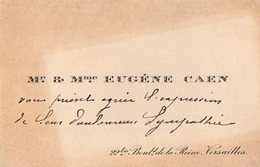 Mr & Mme EUGÈNE CAEN
vous prient agréer l'expression
de leur douloureuse Sympathie
Boulд de la Reine, Versailles.